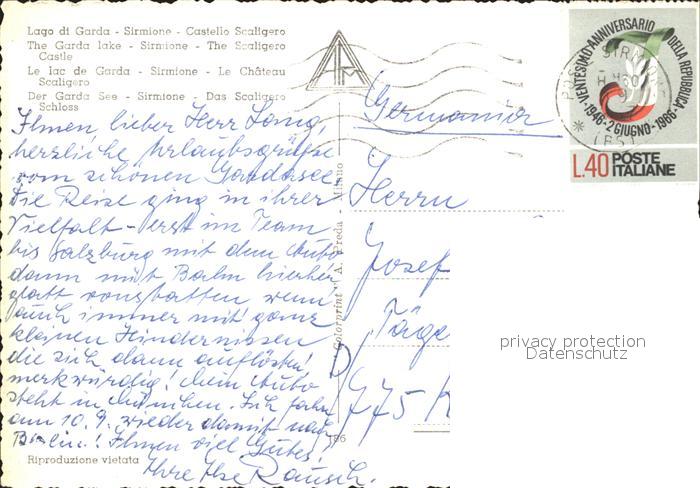 Lago di Garda - Sirmione - Castello Scaligero
The Garda lake - Sirmione - The Scaligero
Castle
Le lac de Garda - Sirmione - Le Château
Scaligero
Der Garda See - Sirmione - Das Scaligero
Schloss
Ihnen, lieber Herr
herzliche Urlaubsgrüße
vom schönen Gardasee.
Die Reise ging in ihrer
Vielfalt - erst im Team
bis Salzburg mit dem Auto
dann mit Bahn hierher
glatt vonstatten, wenn
auch immer mit ganz
kleinen Hindernissen
die sich dann auflösten!
merkwürdig! Mein Auto
steht in München. Ich fahre
am 10.9. wieder damit nach
Berlin! Ihnen viel Gutes!
Ihre Ilse Rausch.
Riproduzione vietata
Colorprint A. Preda - Milano
186
ATM
Germania
Herrn
Josef
Jäge
D
775 K
VENTESIMO ANNIVERSARIO DELLA REPUBBLICA
1946 - 2 GIUGNO - 1966
L.40 POSTE
ITALIANE
privacy protection
Datenschutz